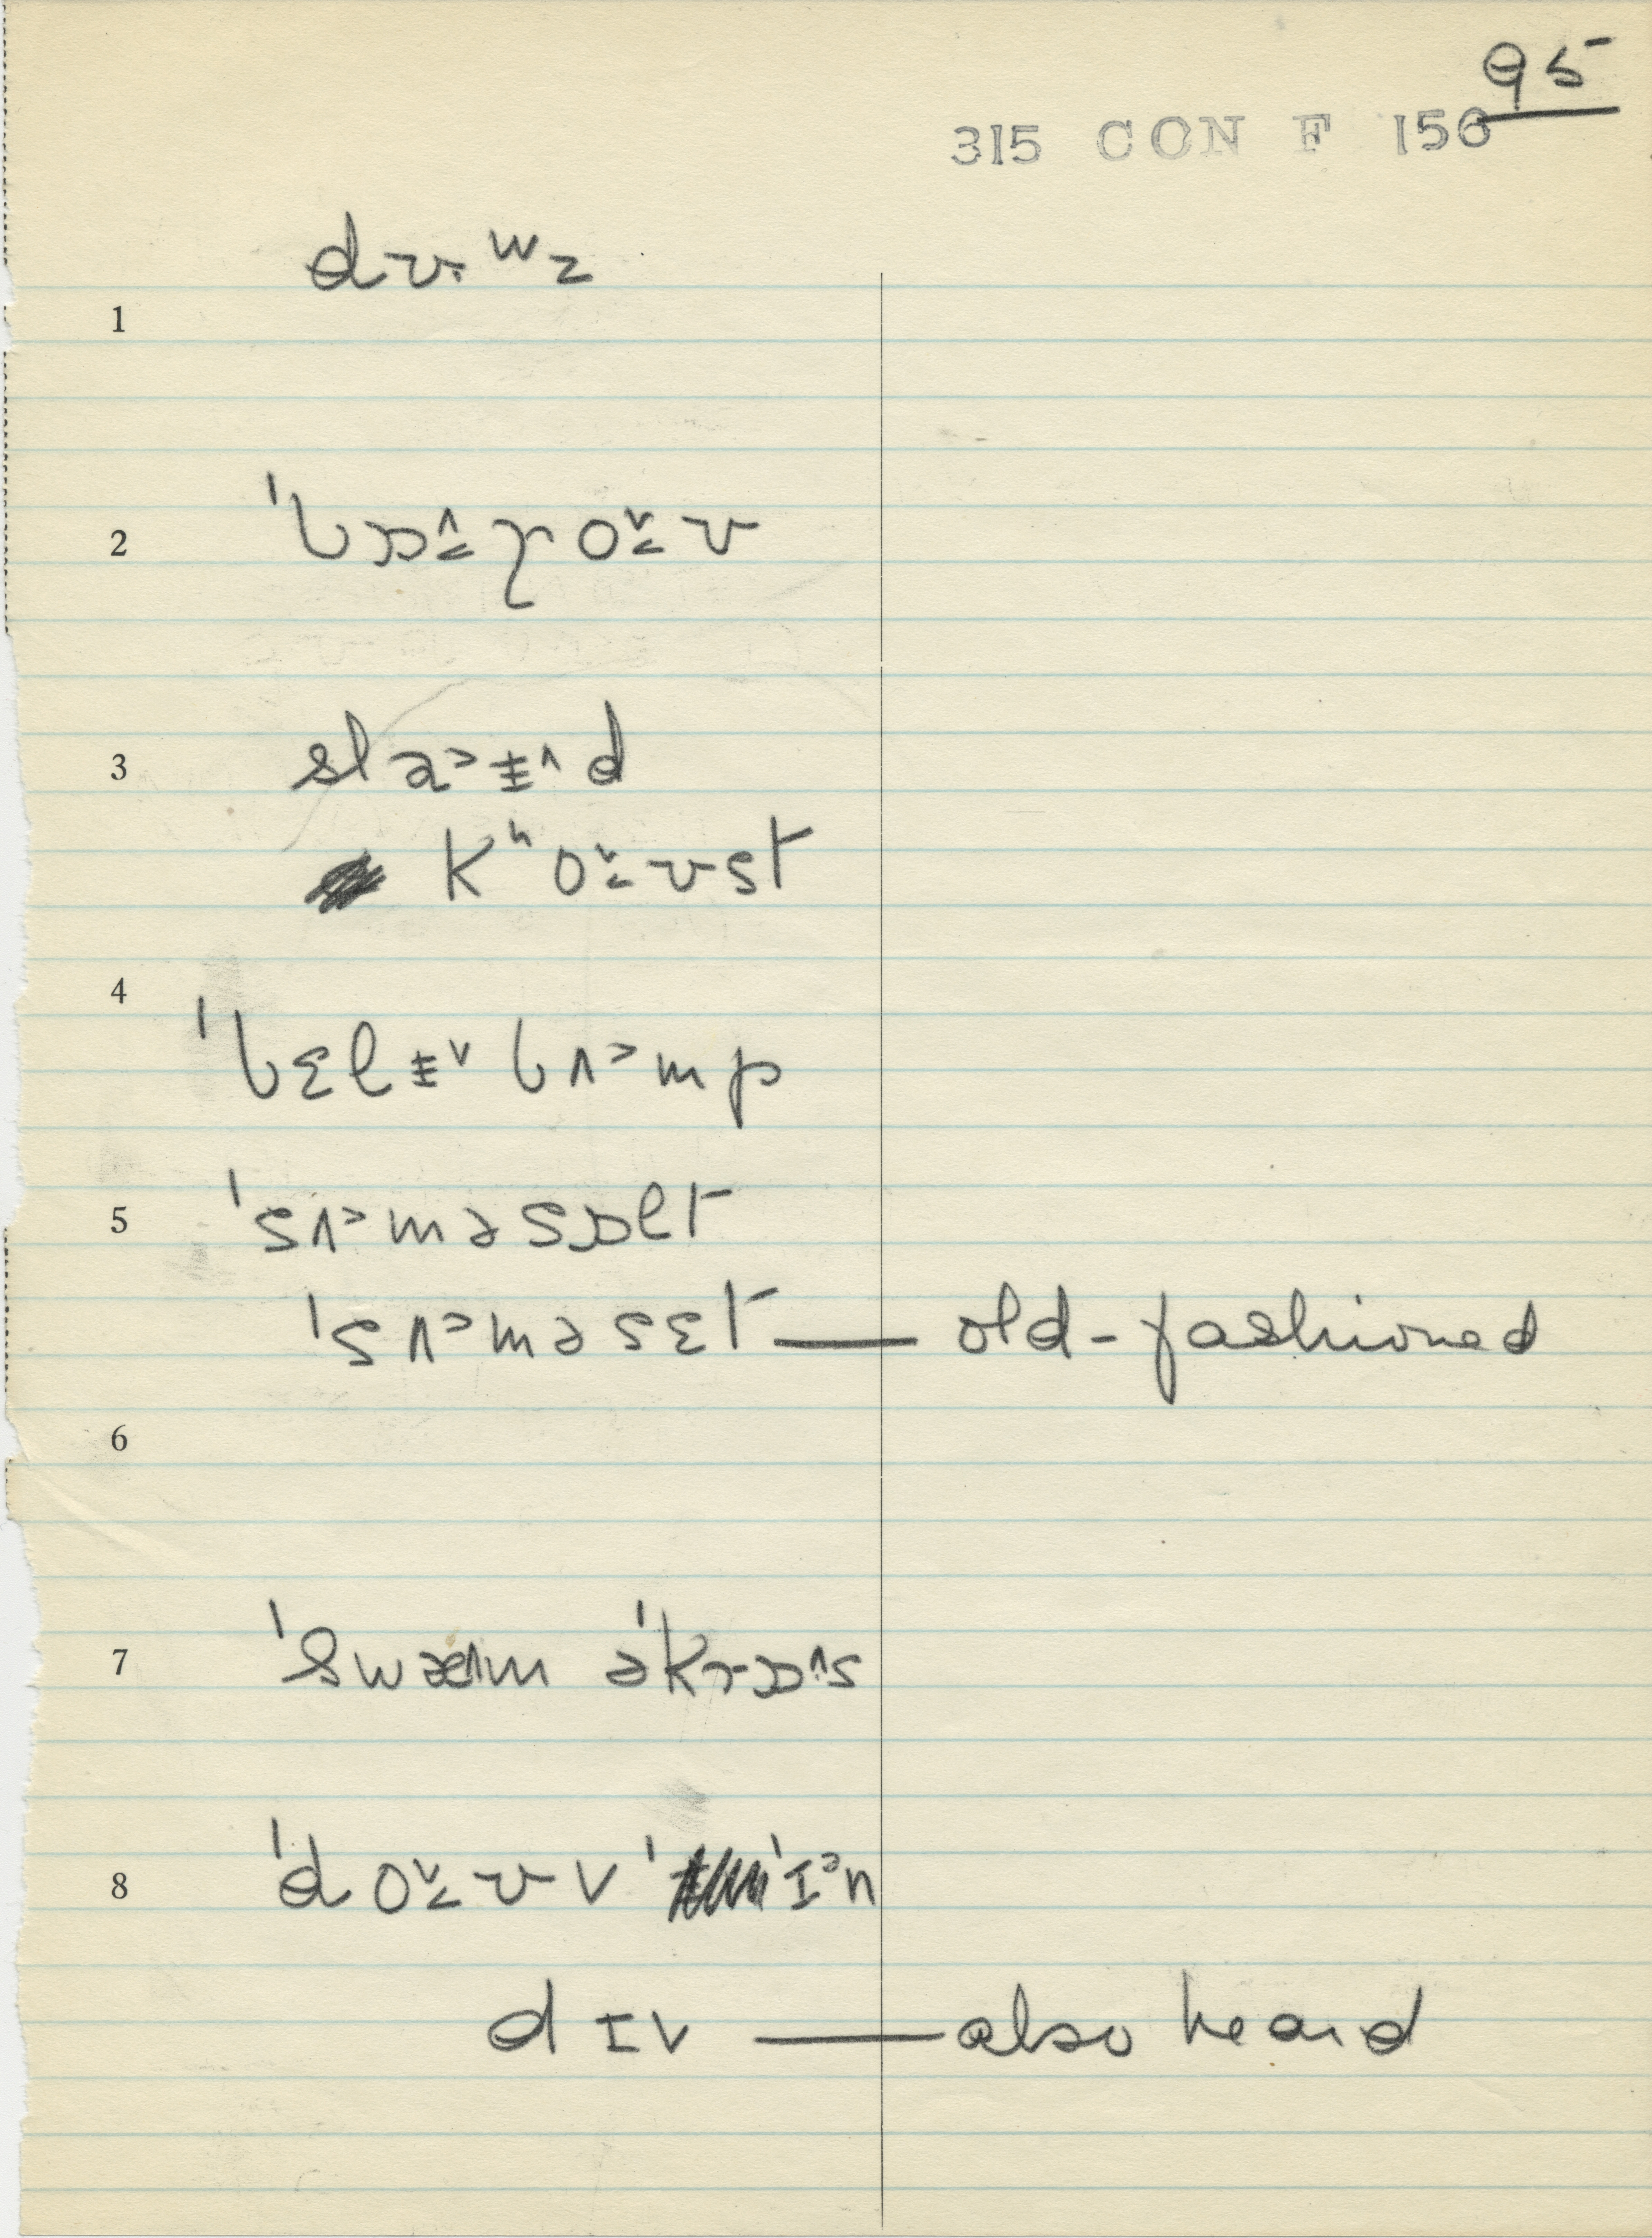 95
315 CON F 156
dʊ·ʷz
1
2 ˈbɒ·ɣoˇ·ʊ
3 sla˃ɨ^d
kʰoˇ·ʊst
4
ˈbɛlɨˇbʌ˃mp
5 ˈsʌ˃məsɒlt
ˈsʌ˃məsɛt — old-fashioned
6
7 ˈswæm əˈkrɒ^s
8 ˈdoˇ·ʊv ˈɪ˃n
dɪv — also heard